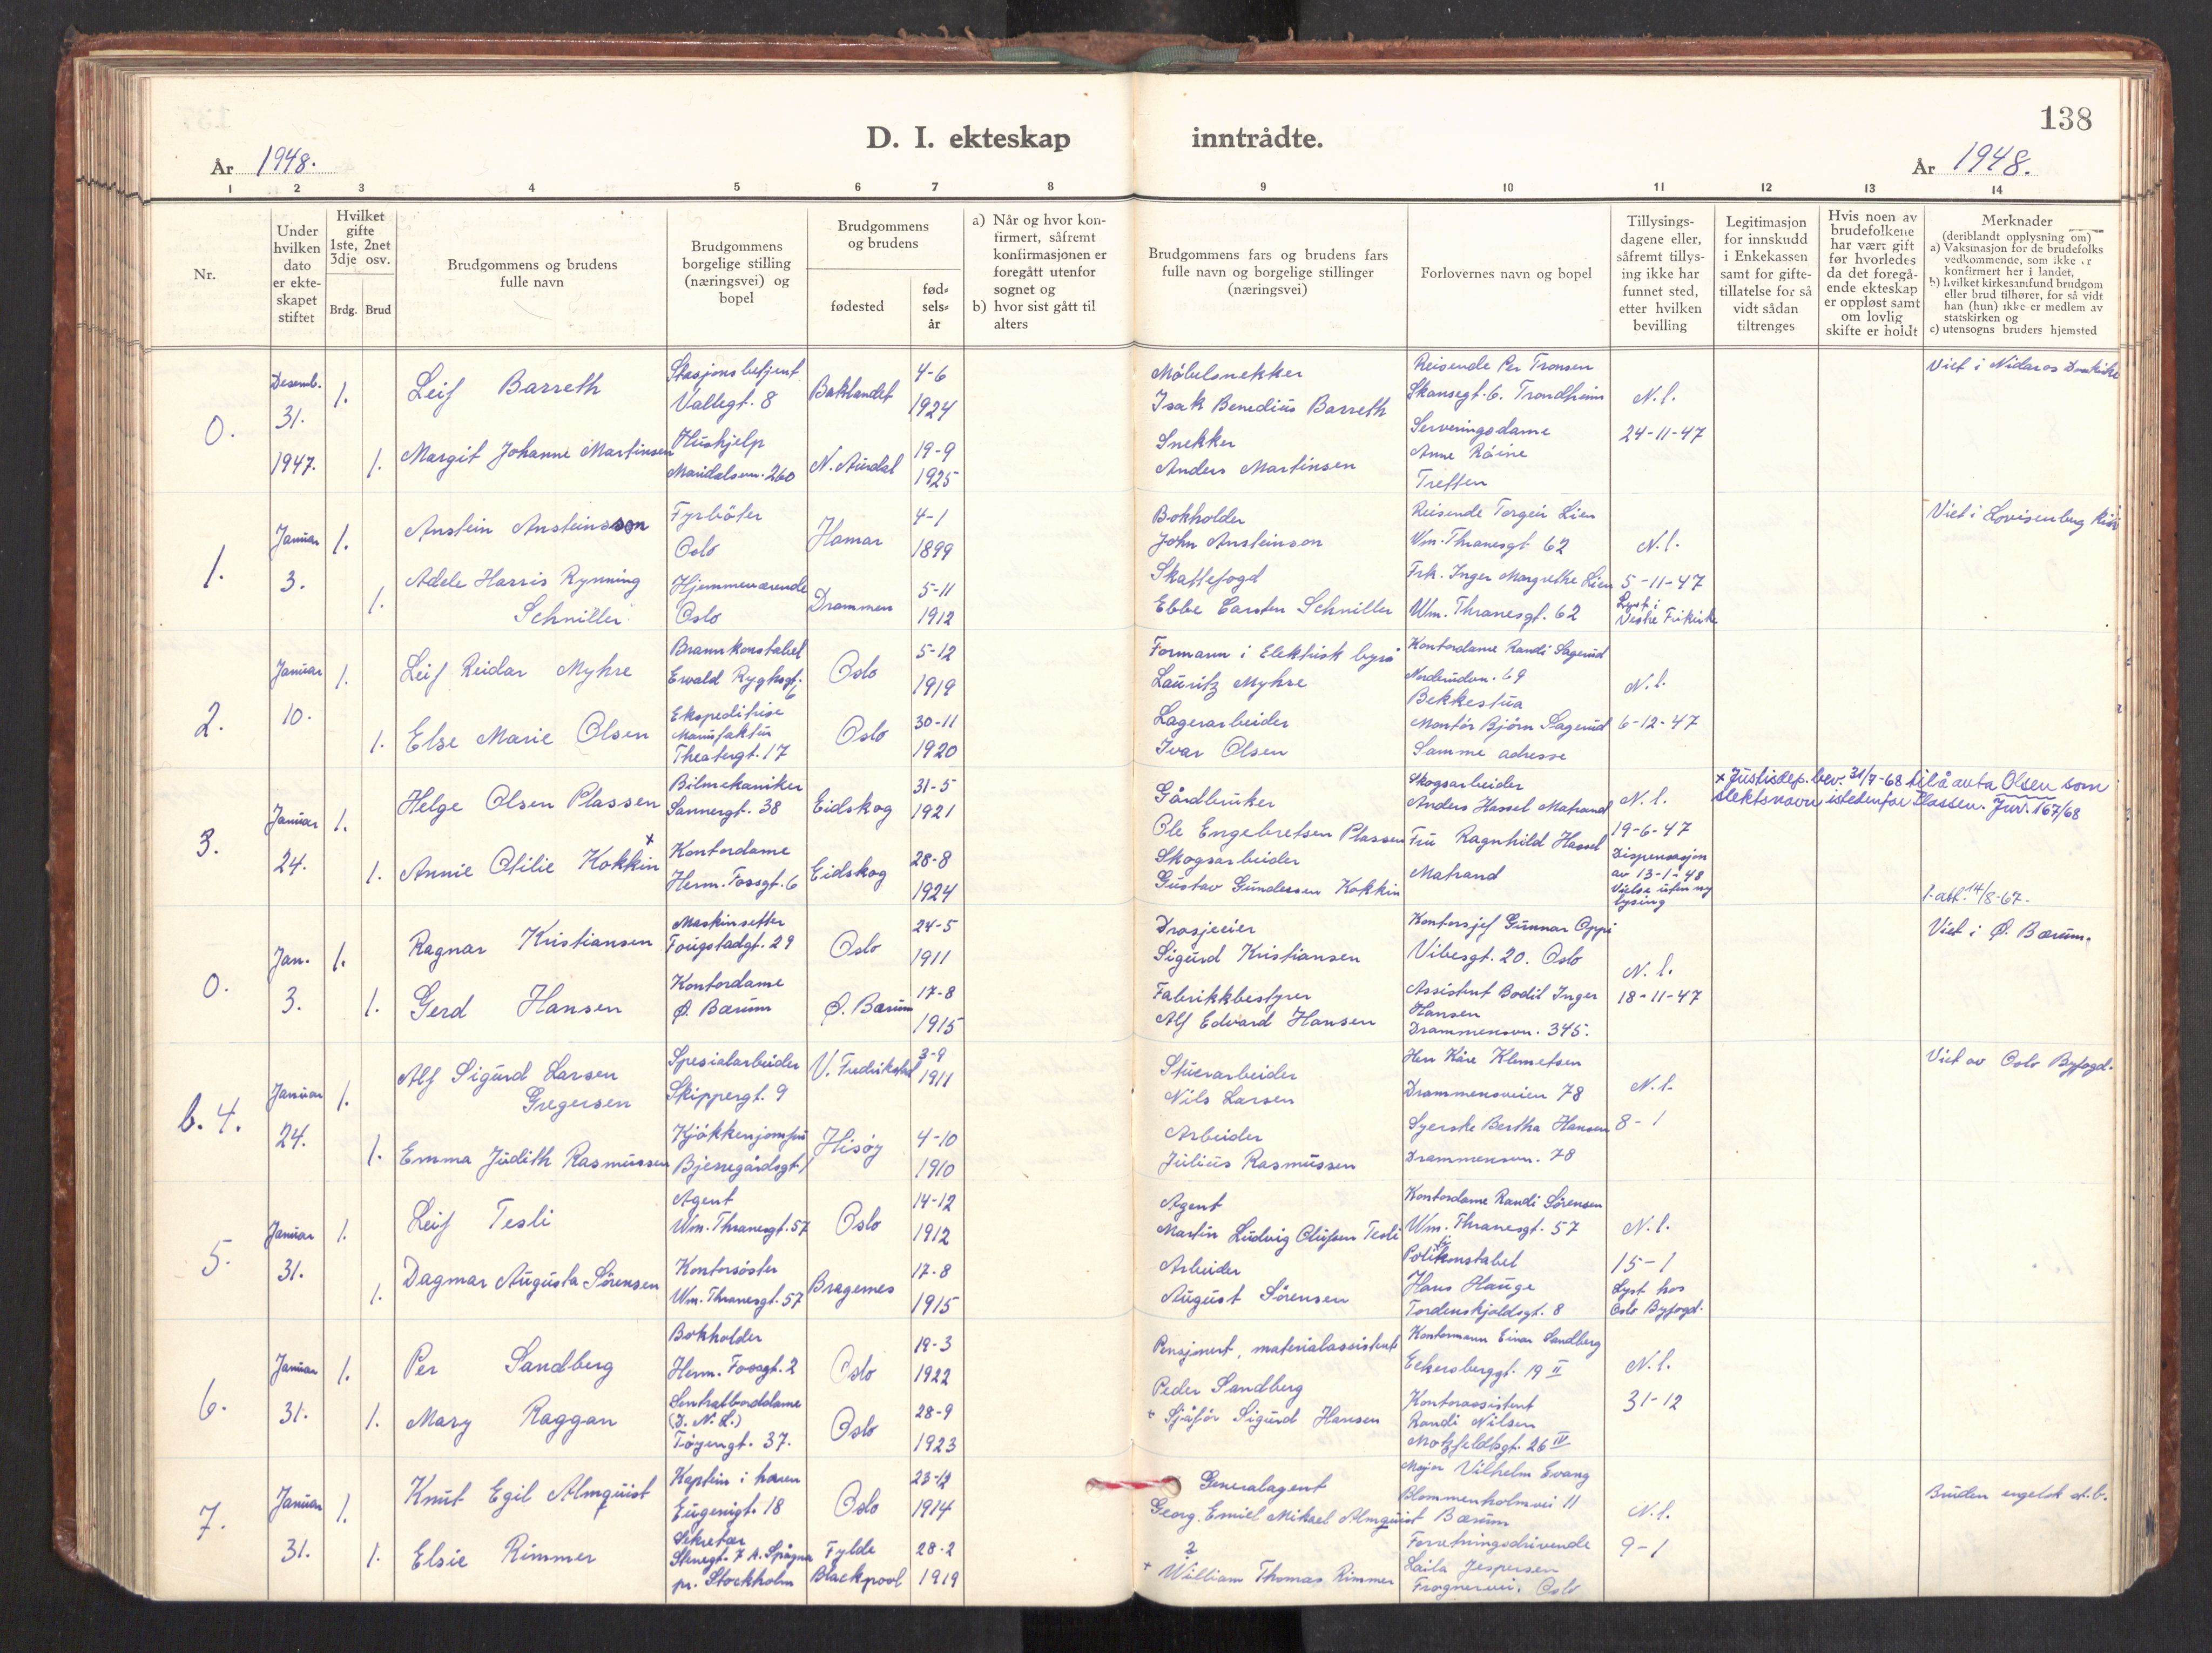 138
D. I. ekteskap inntrådte.
År 1948. År 1948.
1 2 3 4 5 6 7 8 9 10 11 12 13 14
Nr.
Under hvilken dato er ekte-skapet stiftet
Hvilket gifte 1ste, 2net 3dje osv.
Brdg. Brud
Brudgommens og brudens fulle navn
Brudgommens borgelige stilling (næringsvei) og bopel
Brudgommens og brudens
fødested
fød-sels-år
a) Når og hvor kon-firmert, såfremt konfirmasjonen er foregått utenfor sognet og
b) hvor sist gått til alters
Brudgommens fars og brudens fars fulle navn og borgelige stillinger (næringsvei)
Forlovernes navn og bopel
Tillysings-dagene eller, såfremt tillys-ing ikke har funnet sted, etter hvilken bevilling
Legitimasjon for innskudd i Enkekassen samt for gifte-tillatelse for så vidt sådan tiltrenges
Hvis noen av brudefolkene har vært gift før hvorledes da det foregå-ende ekteskap er oppløst samt om lovlig skifte er holdt
Merknader
(deriblandt opplysning om)
a) Vaksinasjon for de brudefolks vedkommende, som ikke er konfirmert her i landet,
b) hvilket kirkesamfund brudgom eller brud tilhører, for så vidt han (hun) ikke er medlem av statskirken og
c) utensogns bruders hjemsted
0.
Desemb. 31. 1947.
1. Leif Barreth
Stasjonsbetjent
Vallegt. 8
Baklandet
4-6 1924
Møbelsnekker
Isak Benedius Barreth
Reisende Per Tronsen
Skansegt. 6. Trondheim
N.l.
24-11-47
Viet i Nidaros Domkirke
1. Margit Johanne Martinsen
Hushjelp
Maridalsvn. 260
N. Aurdal
19-9 1925
Snekker
Anders Martinsen
Serveringsdame
Anne Røine
Tretten
1.
Januar 3.
1. Anstein Ansteinsson
Fyrbøter
Oslo
Hamar
4-1 1899
Bokholder
John Ansteinson
Reisende Torgeir Lien
Wm. Thranesgt. 62
N.l.
5-11-47
Lyst i
Vestre Frikirke
Viet i Lovisenberg
1. Adele Harris Rynning
Schnitler
Hjemmeværende
Oslo
Drammen
5-11 1912
Skattefogd
Ebbe Carsten Schnitler
Frk. Inger Margrethe Lien
Wm. Thranesgt. 62
2.
Januar 10.
1. Leif Reidar Myhre
Brannkonstabel
Ewald Ryghsgt. 6
Oslo
5-12 1919
Formann i Elektrisk byrå
Lauritz Myhre
Kontordame Randi Sagerud
69
Bekkestua
N.l.
6-12-47
1. Else Marie Olsen
Ekspeditrise
Manufaktur
Theatergt. 17
Oslo
30-11 1920
Lagerarbeider
Ivar Olsen
Montør Bjørn Sagerud
Samme adresse
3.
Januar 24.
1. Helge Olsen Plassen x
Bilmekaniker
Sannergt. 38
Eidskog
31-5 1921
Gårdbruker
Ole Engebretsen Plassen
Skogsarbeider
Anders Hassel Matrand
N.l.
19-6-47
Dispensasjon
av 13-1-48
Vielse uten ny
lysing
x Justisdep. bev. 31/7-68 til å anta Olsen som
slektsnavn istedenfor Plassen. Jnr. 167/68
1. Annie Otilie Kokkin
Kontordame
Herm. Fossgt. 6
Eidskog
28-8 1924
Skogsarbeider
Gustav Gundersen Kokkin
Fru Ragnhild Hassel
Matrand
1. att. 14/8-67.
0.
Jan. 3.
1. Ragnar Kristiansen
Maskinsetter
Fougstadgt. 29
Oslo
24-5 1911
Drosjeeier
Sigurd Kristiansen
Kontorsjef Gunnar Oppi
Vibesgt. 20. Oslo
N.l.
18-11-47
Viet i Ø. Bærum.
1. Gerd Hansen
Kontordame
Ø. Bærum
Ø. Bærum
17-8 1915
Fabrikkbestyrer
Alf Edvard Hansen
Assistent Bodil Inger
Hansen
Drammensvn. 345.
b. 4.
Januar 24.
1. Alf Sigurd Larsen
Gregersen
Spesialarbeider
Skippergt. 9
V. Fredrikstad
3-9 1911
Stuerarbeider
Nils Larsen
Herr Kåre Klemetsen
Drammensveien 78
N.l.
8-1
Viet av Oslo Byfogd.
1. Emma Judith Rasmussen
Kjøkkenjomfru
Bjerregårdsgt. 1
Hisøy
4-10 1910
Arbeider
Julius Rasmussen
Syerske Bertha Hansen
Drammensvn. 78
5.
Januar 31.
1. Leif Tesli
Agent
Wm. Thranesgt. 57
Oslo
14-12 1912
Agent
Martin Ludvig Olufsen Tesli
Kontordame Randi Sørensen
Wm. Thranesgt. 57
N.l.
15-1
Lyst hos
Oslo Byfogd.
1. Dagmar Augusta Sørensen
Kontorsøster
Wm. Thranesgt. 57
Bragernes
17-8 1915
Arbeider
August Sørensen
Politikonstabel
Hans Hauge
Tordenskjoldsgt. 8
6.
Januar 31.
1. Per Sandberg
Bokholder
Herm. Fossgt. 2
Oslo
19-3 1922
Pensjonert, materialassistent
Peder Sandberg
Kontormann Einar Sandberg
Eckersberggt. 19 II
N.l.
31-12
1. Mary Raggan
Sentralborddame
(D. N. L.)
Tøyengt. 37.
Oslo
28-9 1923
+ Sjåfør Sigurd Hansen
Kontorassistent
Randi Nilsen
Motzfeldtsgt. 26 IV
7.
Januar 31.
1. Knut Egil Almquist
Kaptein i hæren
Eugenigt. 18
Oslo
23-12 1914
Generalagent
Georg Emiel Mikael Almquist
Major Vilhelm Evang
Blommenholmvei 11
Bærum
N.l.
9-1
Bruden engelsk st.b.
1. Elsie Rimmer
Sekretær
Stenegt. 7 A. Spånga
pr. Stockholm
Fylde
Blackpool
28-2 1919
?
+ William Thomas Rimmer
Forretningsdrivende
Laila Jespersen
Frognervei. Oslo